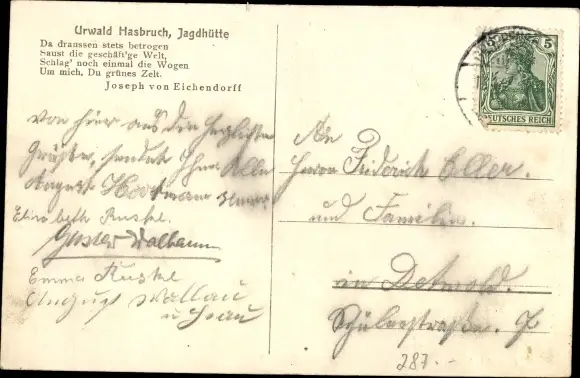 Urwald Hasbruch, Jagdhütte
Da draussen stets betrogen
Saust die geschäft'ge Welt,
Schlag' noch einmal die Wogen
Um mich, Du grünes Zelt.
Joseph von Eichendorff
von hier aus die herzlichsten
Grüße, sendet Ihnen Alle
August
Elisabeth Kuske.
Gustav Walbaum
Emma Kuske
August Wallau
u Frau
An
Herrn Friedrich Eller.
und Familie.
in Detmold.
Schülerstraße. 7
287.-
5
DEUTSCHES REICH